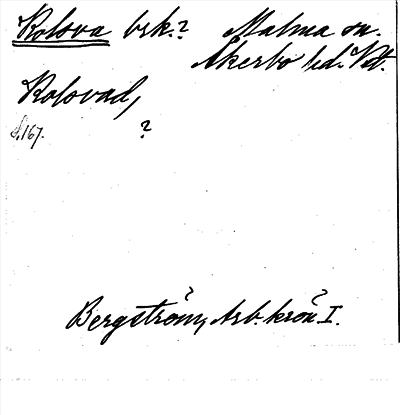 Kolova brk.? Malma sn.
Åkerbo hd. Vstm.
Kolovad,
S. 167. ?
Bergström, Arb. krön. I.